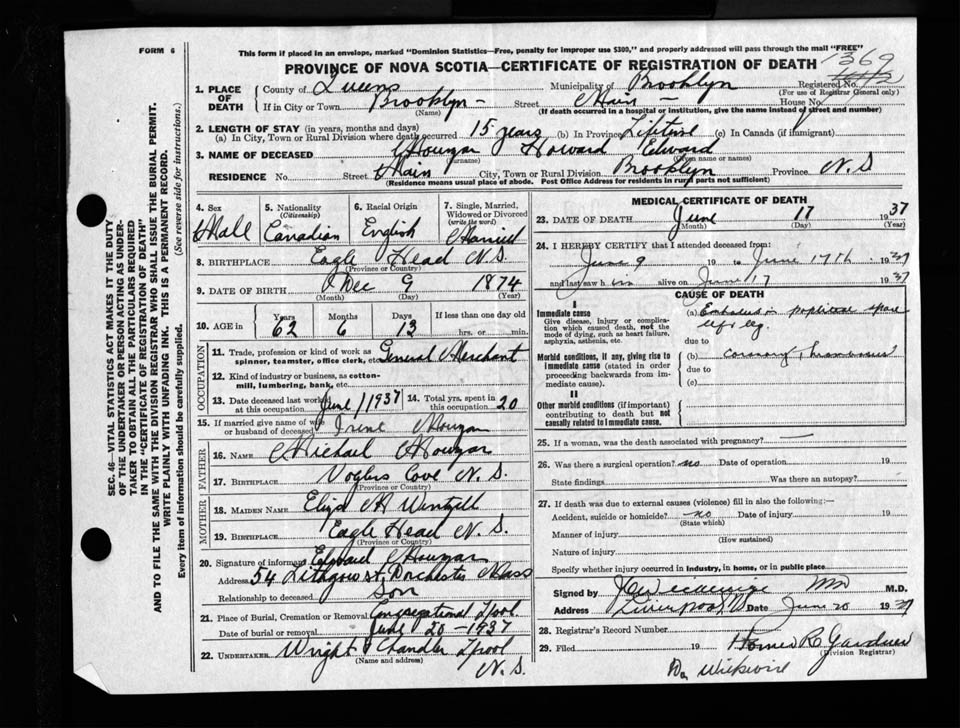 FORM 6
This form if placed in an envelope, marked "Dominion Statistics—Free, penalty for improper use $300," and properly addressed will pass through the mail "FREE"
PROVINCE OF NOVA SCOTIA—CERTIFICATE OF REGISTRATION OF DEATH
1369
1. PLACE OF DEATH
County of Queens Municipality of Brooklyn Registered No.
(For use of Registrar General only)
If in City or Town Brooklyn - Street Main - House No.
(Name) (If death occurred in a hospital or institution, give the name instead of street and number)
2. LENGTH OF STAY (in years, months and days)
(a) In City, Town or Rural Division where death occurred 15 years (b) In Province Lifetime (c) In Canada (if immigrant)
3. NAME OF DECEASED Howard Edward
(Surname) (Given name or names)
RESIDENCE No. Street Main City, Town or Rural Division Brooklyn Province N.S
(Residence means usual place of abode. Post Office Address for residents in rural parts not sufficient)
SEC. 46—VITAL STATISTICS ACT MAKES IT THE DUTY
OF THE UNDERTAKER OR PERSON ACTING AS UNDER-
TAKER TO OBTAIN ALL THE PARTICULARS REQUIRED
IN THE "CERTIFICATE OF REGISTRATION OF DEATH"
AND TO FILE THE SAME WITH THE DIVISION REGISTRAR WHO SHALL ISSUE THE BURIAL PERMIT.
WRITE PLAINLY WITH UNFADING INK. THIS IS A PERMANENT RECORD.
Every item of information should be carefully supplied. (See reverse side for instructions.)
4. Sex
Male
5. Nationality
(Citizenship)
Canadian
6. Racial Origin
English
7. Single, Married, Widowed or Divorced
(write the word)
Married
8. BIRTHPLACE Eagle Head N.S.
(Province or Country)
9. DATE OF BIRTH Dec 9 1874
(Month) (Day) (Year)
10. AGE in Years Months Days If less than one day old
62 6 13 hrs. or min.
OCCUPATION
11. Trade, profession or kind of work as General Merchant
spinner, teamster, office clerk, etc.
12. Kind of industry or business, as cotton-
mill, lumbering, bank, etc.
13. Date deceased last worked at this occupation June /1937
14. Total yrs. spent in this occupation 20
15. If married give name of wife or husband of deceased Irene
FATHER
16. Name Michael
17. Birthplace Voglers Cove N.S.
(Province or Country)
MOTHER
18. MAIDEN NAME Wentzell
19. BIRTHPLACE Eagle Head N.S.
(Province or Country)
20. Signature of informant Edward
Address 54 Lithgow St. Dorchester Mass
Relationship to deceased Son
21. Place of Burial, Cremation or Removal Congregational L'pool
Date of burial or removal June 20 - 1937
22. UNDERTAKER Wright Chandler L'pool
(Name and address) N.S.
MEDICAL CERTIFICATE OF DEATH
23. DATE OF DEATH June 17 1937
(Month) (Day) (Year)
24. I HEREBY CERTIFY that I attended deceased from:
June 9 19 to June 17th 1937
and last saw him alive on June 17 1937
CAUSE OF DEATH
I
Immediate cause
Give disease, injury or complication which caused death, not the mode of dying, such as heart failure, asphyxia, asthenia, etc.
(a) Embolus in popliteal space
left leg.
due to
Morbid conditions, if any, giving rise to immediate cause (stated in order proceeding backwards from immediate cause).
(b) coronary thrombosis
due to
(c)
II
Other morbid conditions (if important) contributing to death but not causally related to immediate cause.
25. If a woman, was the death associated with pregnancy?
26. Was there a surgical operation? no Date of operation 19
State findings Was there an autopsy?
27. If death was due to external causes (violence) fill in also the following:—
Accident, suicide or homicide? no Date of injury 19
(State which)
Manner of injury
(How sustained)
Nature of injury
Specify whether injury occurred in industry, in home, or in public place
Signed by M.D.
Address Liverpool Date June 20 1937
28. Registrar's Record Number
29. Filed 19 Homer R. Gardner
(Division Registrar)
Dr. Wickwire